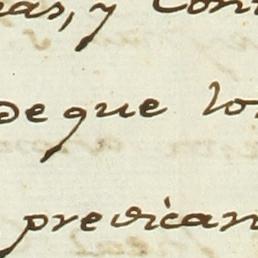 eas, y con
de que lo
predican